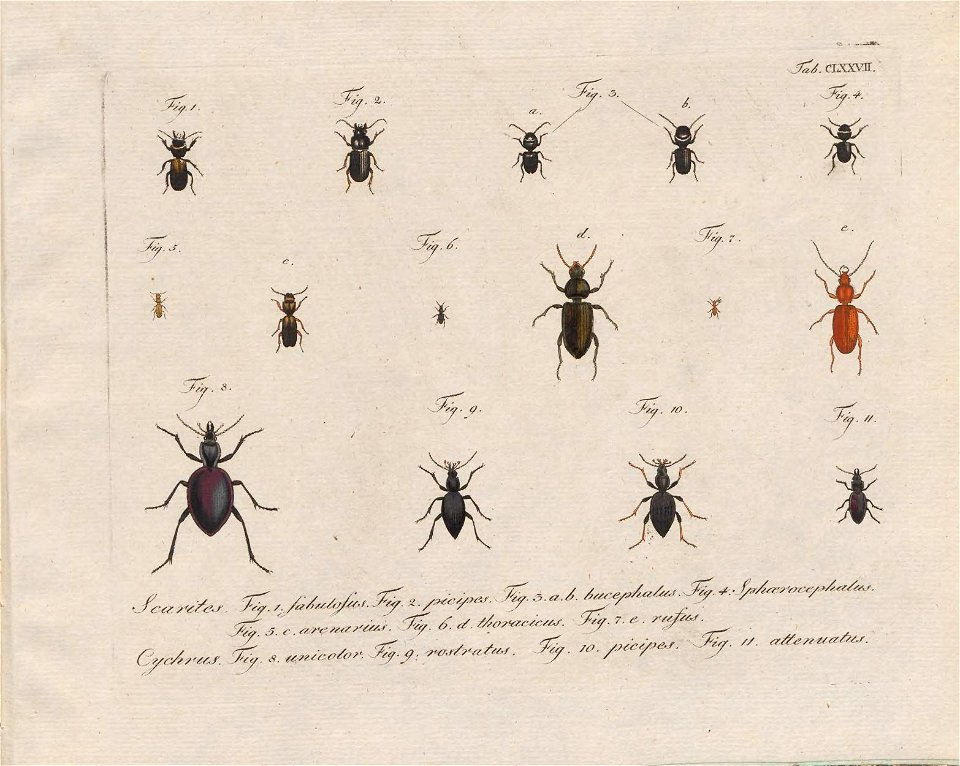 Tab. CLXXVII.
Fig. 1. Fig. 2. Fig. 3. Fig. 4.
a. b.
Fig. 5. c. Fig. 6. d. Fig. 7. e.
Fig. 8. Fig. 9. Fig. 10. Fig. 11.
Scarites. Fig. 1. fabulosus. Fig. 2. picipes. Fig. 3. a. b. bucephalus. Fig. 4. Sphœrocephalus.
Fig. 5. c. arenarius. Fig. 6. d. thoracicus. Fig. 7. e. rufus.
Cychrus. Fig. 8. unicolor. Fig. 9. rostratus. Fig. 10. picipes. Fig. 11. attenuatus.